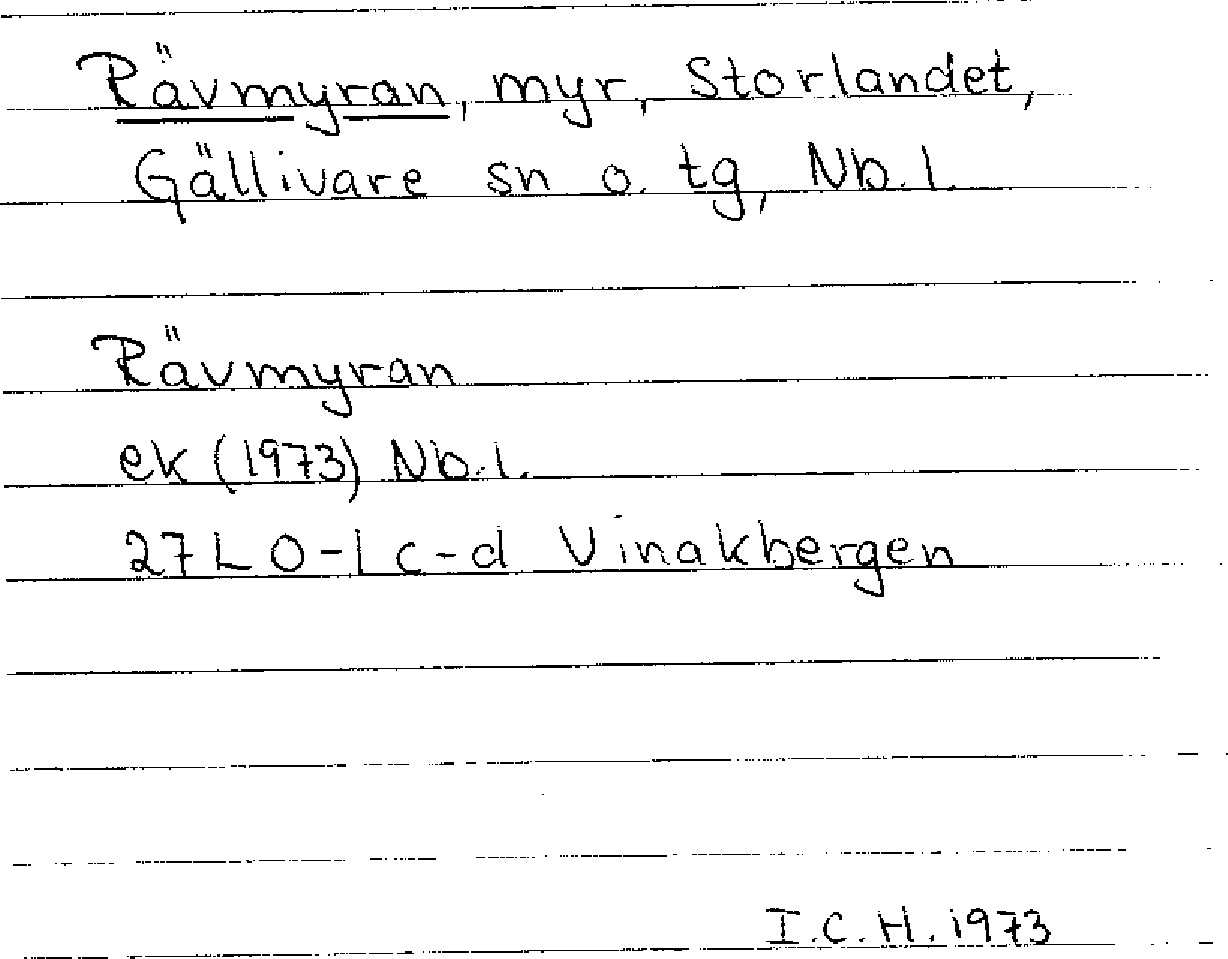 Rävmyran, myr, Storlandet,
Gällivare sn o. tg, Nb. l.
Rävmyran
ek (1973) Nb. l.
27L 0-1 c-d Vinakbergen
I.C.H. 1973